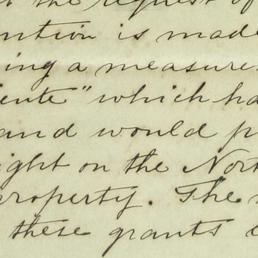 t the request of
ention is made
ing a measure
iente" which ha
and would p
ight on the Nort
roperty. The
these grants